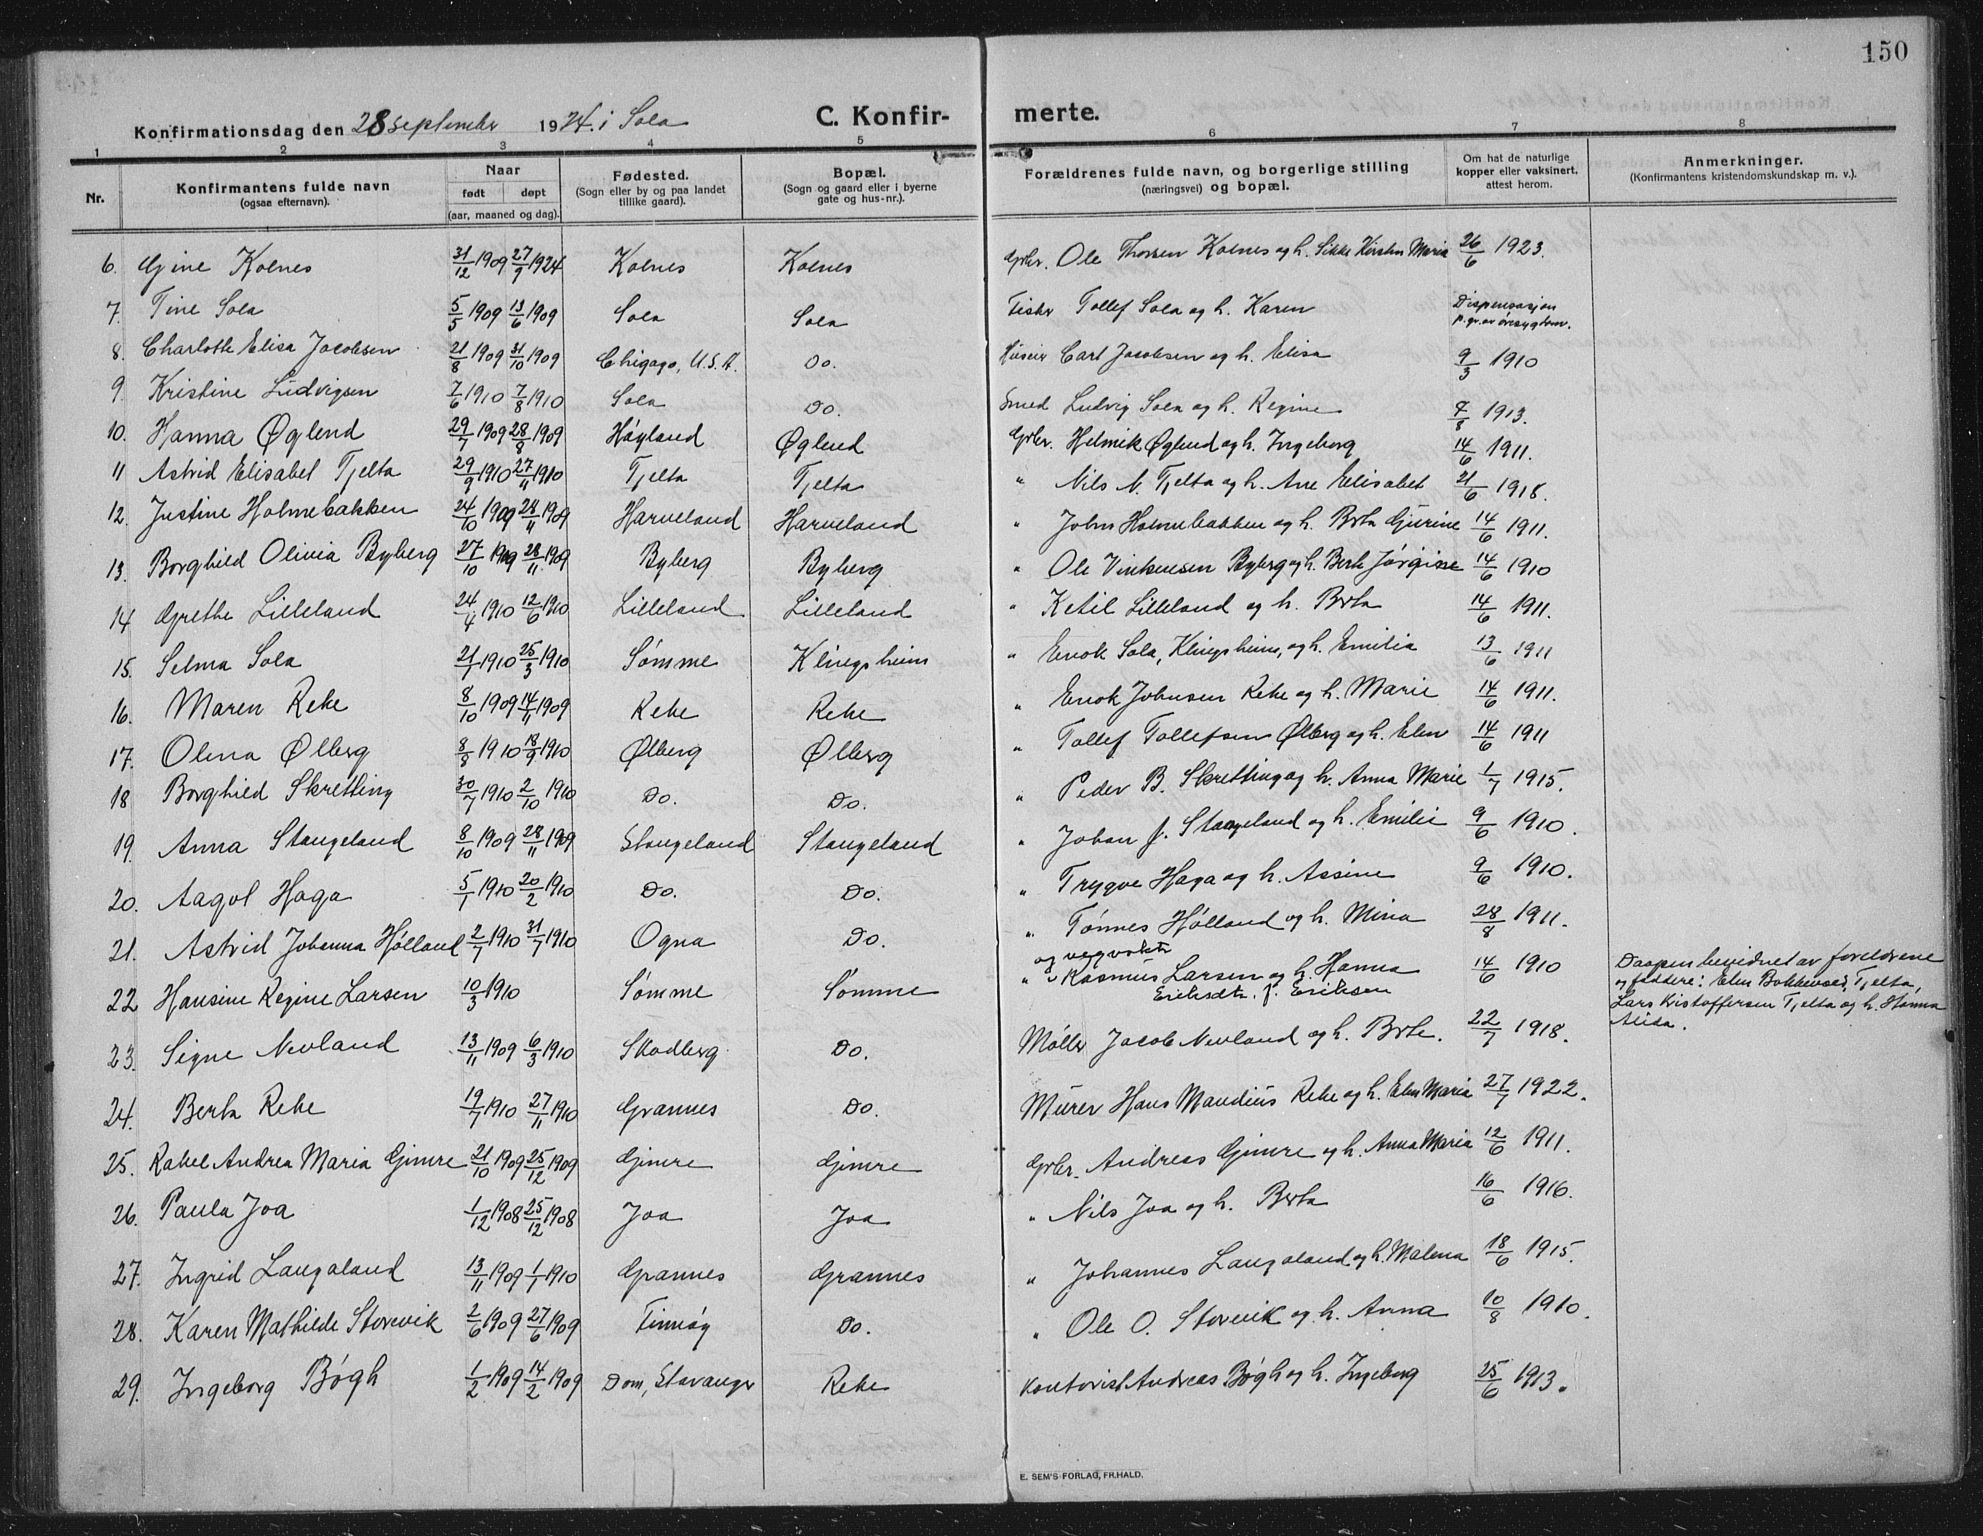 150
Konfirmationsdag den 28 september 1924. i Sola C. Konfir- merte.
1 2 3 4 5 6 7 8
Nr. Konfirmantens fulde navn (ogsaa efternavn). Naar født døpt (aar, maaned og dag). Fødested. (Sogn eller by og paa landet tillike gaard). Bopæl. (Sogn og gaard eller i byerne gate og hus-nr.). Forældrenes fulde navn, og borgerlige stilling (næringsvei) og bopæl. Om hat de naturlige kopper eller vaksinert, attest herom. Anmerkninger. (Konfirmantens kristendomskundskap m. v.).
6. Gine Kolnes 31/12 1909 27/9 1924 Kolnes Kolnes Grbr. Ole Thorsen Kolnes og h. Sikke Kirsten Maria 26/6 1923.
7. Tine Sola 5/5 1909 13/6 1909 Sola Sola Fisker Tollef Sola og h. Karen Dispensasjon p. gr. av
8. Charlotte Elisa Jacobsen 21/8 1909 31/10 1909 Chigago, U.S.A. Do. Huseier Carl Jacobsen og h. Elisa 9/3 1910
9. Kristine Ludvigsen 7/6 1910 7/8 1910 Sola Do. Smed Ludvig Sola og h. Regine 7/8 1913.
10. Hanna Øglend 29/7 1909 28/8 1909 Høyland Øglend Grbr. Helmik Øglend og h. Ingeborg 14/6 1911.
11 Astrid Elisabet Tjelta 29/9 1910 27/11 1910 Tjelta Tjelta " Nils N. Tjelta og h. Ane Elisabet 21/6 1918.
12. Justine Holmebakken 24/10 1909 28/11 1909 Harveland Harveland " John Holmebakken og h. Brta Gurine 14/6 1911.
13. Borghild Olivia Byberg 27/10 1909 28/11 1909 Byberg Byberg " Ole Vinkensen Byberg og h. Berte Jørgine 14/6 1910
14 Grethe Lilleland 24/4 1910 12/6 1910 Lilleland Lilleland " Ketil Lilleland og h. Brta 14/6 1911.
15. Selma Sola 21/1 1910 25/3 1910 Sømme Klingsheim " Enok Sola, Klingsheim, og h. Emilia 13/6 1911
16. Maren Reke 8/10 1909 14/11 1909 Reke Reke " Enok Johnsen Reke og h. Marie 14/6 1911.
17. Olena Ølberg 8/8 1910 18/9 1910 Ølberg Ølberg " Tollef Tollefsen Ølberg og h. Elen 14/6 1911
18 Borghild Skretting 30/7 1910 2/10 1910 Do. Do. " Peder B. Skretting og h. Anna Marie 1/7 1915.
19. Anna Stangeland 8/10 1909 28/11 1909 Stangeland Stangeland " Johan J. Stangeland og h. Emilie 9/6 1910.
20. Aagot Haga 5/1 1910 20/2 1910 Do. Do. " Trygve Haga og h. Assine 9/6 1910.
21. Astrid Johanna Hølland 2/7 1910 31/7 1910 Ogna Do. " Tønnes Hølland og h. Mina 28/8 1911.
og vegvokter
22 Hansine Regine Larsen 10/3 1910 Sømme Sømme " Rasmus Larsen og h. Hanna Eriksdtr. f. Eriksen 14/6 1910 Daapen bevidnet av foreldrene
og faddere: Elen Bokkevoed, Tjelta,
Lars Kristoffersen Tjelta og h. Hanna
Alida.
23. Signe Nevland 13/11 1909 6/3 1910 Skadberg Do. Møller Jacob Nevland og h. Brte. 22/7 1918.
24. Berta Reke 19/7 1910 27/11 1910 Grannes Do. Murer Hans Maudius Reke og h. Elen Maria 27/7 1922.
25. Rakel Andrea Maria Gimre 21/10 1909 25/12 1909 Gimre Gimre Grbr. Andreas Gimre og h. Anna Maria 12/6 1911.
26. Paula Joa 1/12 1908 25/12 1908 Joa Joa " Nils Joa og h. Berta 16/6 1916.
27. Ingrid Langaland 13/11 1909 1/1 1910 Grannes Grannes " Johannes Langaland og h. Malena 18/6 1915.
28. Karen Mathilde Storevik 2/6 1909 27/6 1909 Finnøy Do. " Ole O. Storevik og h. Anna 10/8 1910.
29. Ingeborg Bøgh 1/2 1909 14/2 1909 Dom, Stavanger Reke Kontorist Andreas Bøgh og h. Ingeborg 25/6 1913.
E. SEM'S FORLAG, FR.HALD.